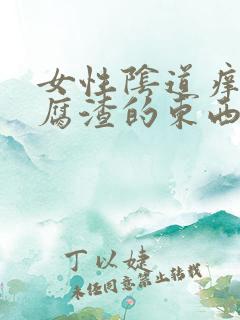 女性陰道痒
腐渣的東西
丁以婕
未经同意禁止转载